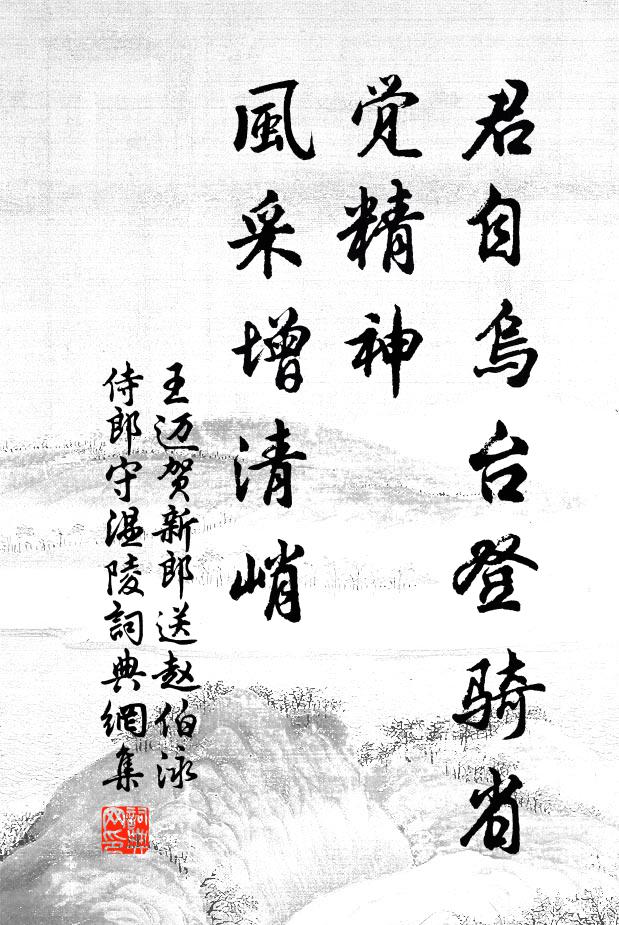 君自烏台登骑省
觉精神
風采增清峭
王迈贺新郎送赵伯泳
侍郎守温陵詞典網集